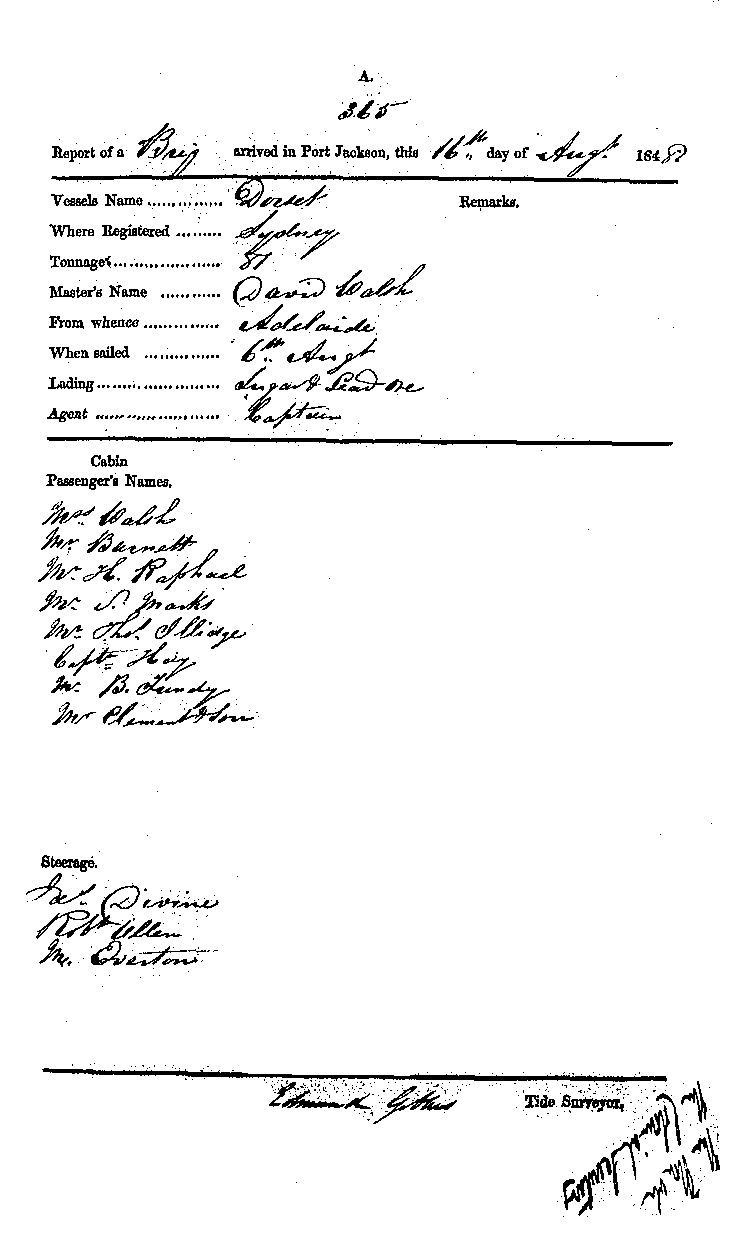 A.
365
Report of a Brig arrived in Port Jackson, this 16th day of Augt. 1848
Vessels Name ............... Dorset Remarks.
Where Registered ......... Sydney
Tonnage ..................... 81
Master's Name ............ David Walsh
From whence ............... Adelaide
When sailed ............... 6th Augt
Lading ........................ Sugar & Lead Ore
Agent ........................ Captain
Cabin
Passenger's Names.
Mrs. Walsh
Mr. Burnett
Mr. H. Raphael
Mr. S. Marks
Mr. Thos. Illidge
Captn Hay
Mr. B. Lundy
Mr Clement & Son
Steerage.
Jas. Divine
Robt Allen
M. Everton
Edmund Tide Surveyor.